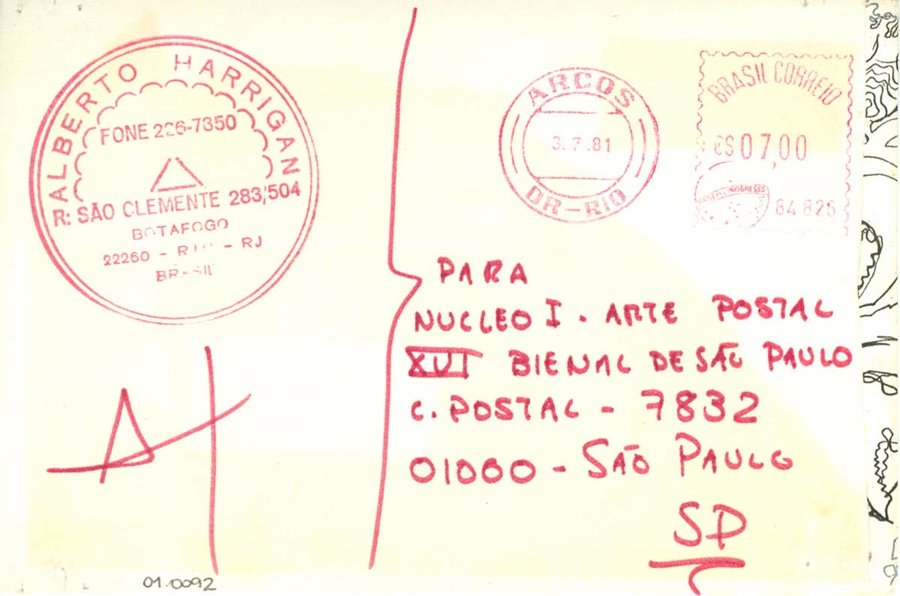 ALBERTO HARRIGAN
FONE 226-7350
R: SÃO CLEMENTE 283,504
BOTAFOGO
22260 - RIO - RJ
BRASIL
ARCOS
3.7.81
DR-RIO
BRASIL CORREIO
C$ 07,00
84826
PARA
NUCLEO I - ARTE POSTAL
XVI BIENAL DE SÃO PAULO
C. POSTAL - 7832
01000 - SÃO PAULO
SP
01.0092